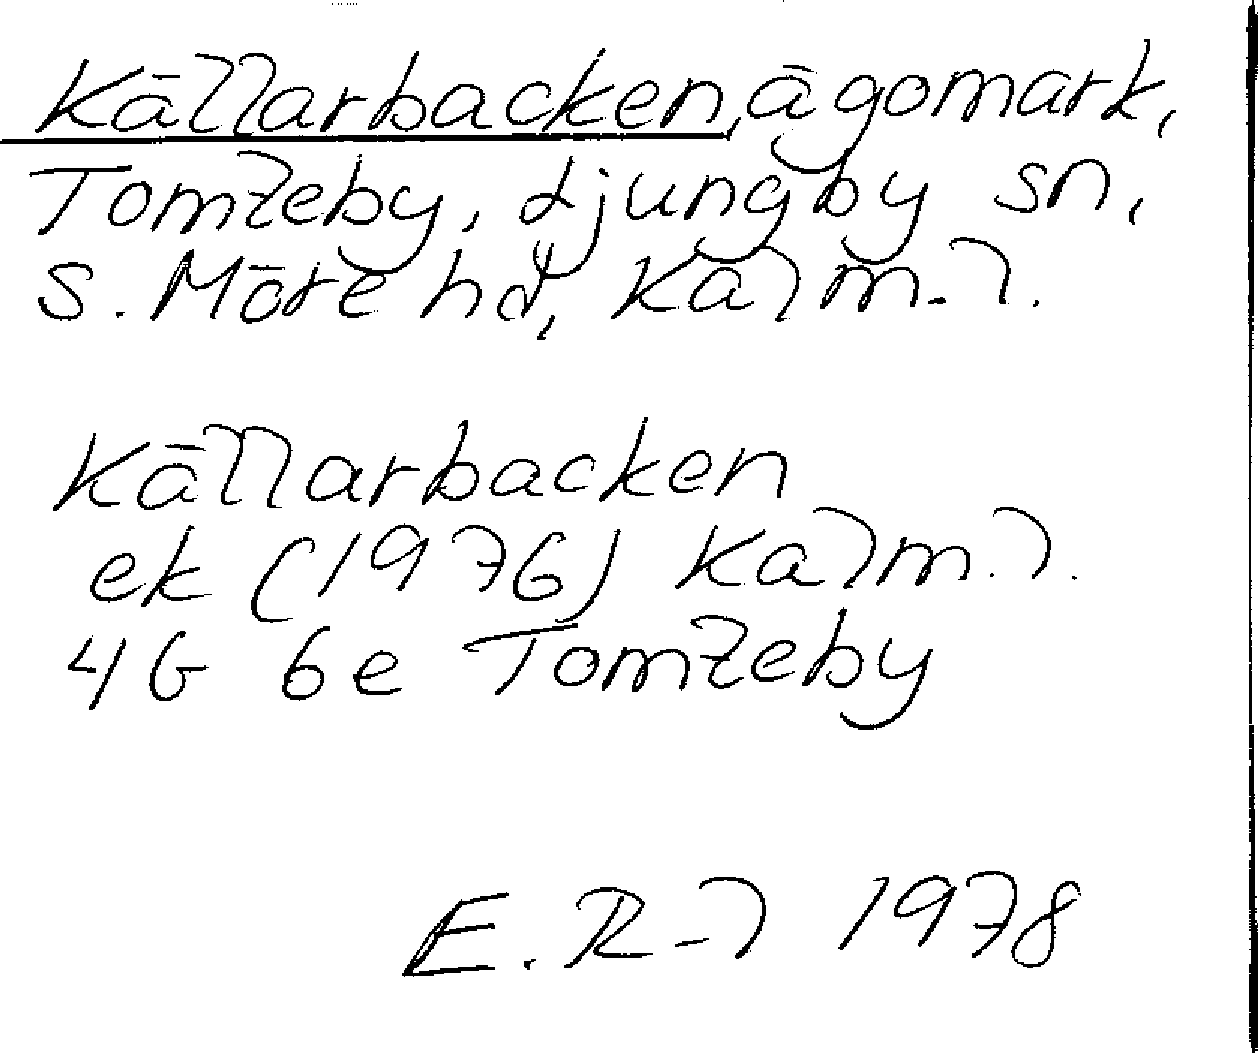 Källarbacken, ägomark,
Tomteby, Ljungby sn,
S. Möre hd, Kalm. l.
Källarbacken
ek (1976) Kalm. l.
4G 6e Tomteby
E. R-l 1978